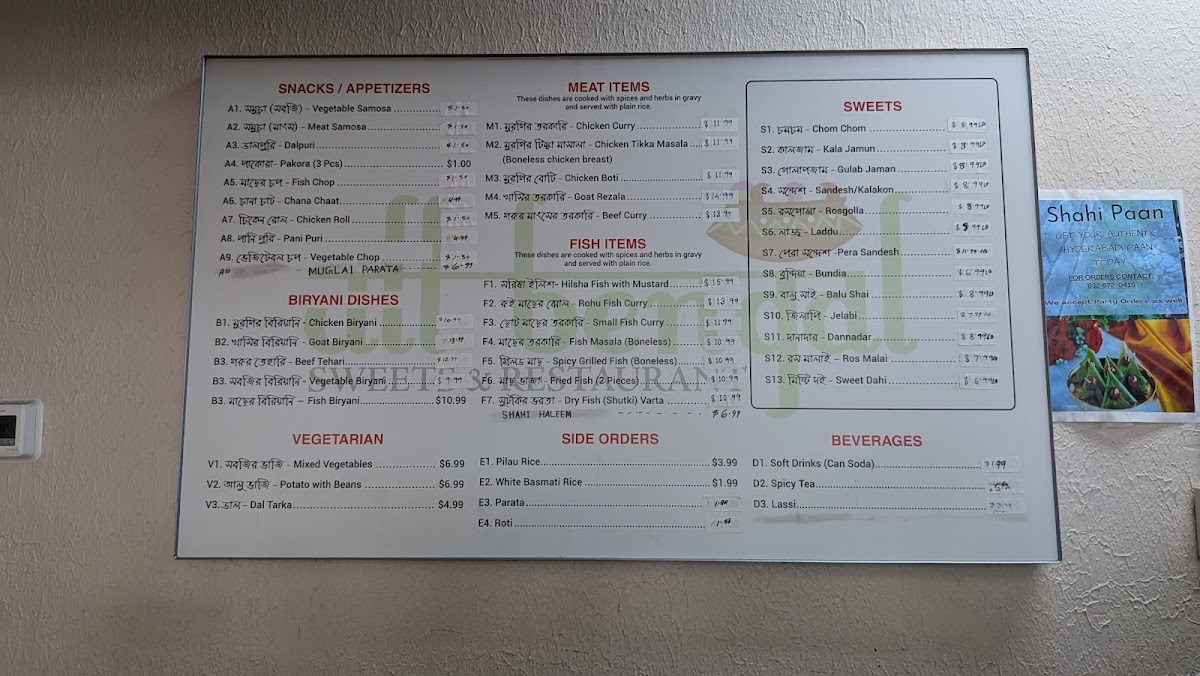 SNACKS / APPETIZERS
A1. সমুচা (সবজি) - Vegetable Samosa ........ $1.50
A2. সমুচা (মাংস) - Meat Samosa ........ $1.50
A3. ডালপুরি - Dalpuri ........ $1.50
A4. পাকোরা - Pakora (3 Pcs) ........ $1.00
A5. মাছের চপ - Fish Chop ........ $1.50
A6. চানা চাট - Chana Chaat ........ 4.99
A7. চিকেন রোল - Chicken Roll ........ $1.50
A8. পানি পুরি - Pani Puri ........ 4.99
A9. ভেজিটেবল চপ - Vegetable Chop ........ $1.50
MUGLAI PARATA ------ $6.99
BIRYANI DISHES
B1. মুরগির বিরিয়ানি - Chicken Biryani ........ $10.99
B2. খাসির বিরিয়ানি - Goat Biryani ........ 13.99
B3. গরুর তেহারি - Beef Tehari ........
B3. সবজির বিরিয়ানি - Vegetable Biryani ........ $9.99
B3. মাছের বিরিয়ানি - Fish Biryani ........ $10.99
VEGETARIAN
V1. সবজির ভাজি - Mixed Vegetables ........ $6.99
V2. আলু ভাজি - Potato with Beans ........ $6.99
V3. ডাল - Dal Tarka ........ $4.99
MEAT ITEMS
These dishes are cooked with spices and herbs in gravy
and served with plain rice.
M1. মুরগির তরকারি - Chicken Curry ........ $11.99
M2. মুরগির টিক্কা মাসালা - Chicken Tikka Masala .... $11.99
(Boneless chicken breast)
M3. মুরগির বোটি - Chicken Boti ........ $11.99
M4. খাসির তরকারি - Goat Rezala ........ $14.99
M5. গরুর মাংসের তরকারি - Beef Curry ........ $13.99
FISH ITEMS
These dishes are cooked with spices and herbs in gravy
and served with plain rice.
F1. সরিষা ইলিশ- Hilsha Fish with Mustard ........ $15.99
F2. রুই মাছের ঝোল - Rohu Fish Curry ........ $13.99
F3. ছোট মাছের তরকারি - Small Fish Curry ........ $11.99
F4. মাছের তরকারি - Fish Masala (Boneless) ........ $10.99
F5. গ্রিলড মাছ - Spicy Grilled Fish (Boneless) ........ $10.99
F6. মাছ ভাজা - Fried Fish (2 Pieces) ........ $10.99
F7. শুটকির ভরতা - Dry Fish (Shutki) Varta ........ $10.99
SHAHI HALEEM ------ $6.99
SWEETS & RESTAURANT
SIDE ORDERS
E1. Pilau Rice ........ $3.99
E2. White Basmati Rice ........ $1.99
E3. Parata ........
E4. Roti ........
SWEETS
S1. চমচম - Chom Chom ........ $8.99lb
S2. কালজাম - Kala Jamun ........ $8.99lb
S3. গোলাপজাম - Gulab Jaman ........ $8.99lb
S4. সন্দেশ - Sandesh/Kalakon ........ $8.99lb
S5. রসগোল্লা - Rosgolla ........ $8.99lb
S6. লাড্ডু - Laddu ........ $8.99lb
S7. পেরা সন্দেশ -Pera Sandesh ........
S8. বুন্দিয়া - Bundia ........ $6.99lb
S9. বালু সাই - Balu Shai ........ $8.99lb
S10. জিলাপি - Jelabi ........
S11. দানাদার - Dannadar ........ $8.99lb
S12. রস মালাই - Ros Malai ........ $7.99lb
S13. মিষ্টি দই - Sweet Dahi ........ $6.99lb
BEVERAGES
D1. Soft Drinks (Can Soda) ........ $1.99
D2. Spicy Tea ........
D3. Lassi ........ $3.99
Shahi Paan
GET YOUR AUTHENTIC
HYDERABADI PAAN
TODAY
FOR ORDERS CONTACT:
We accept Party Orders as well